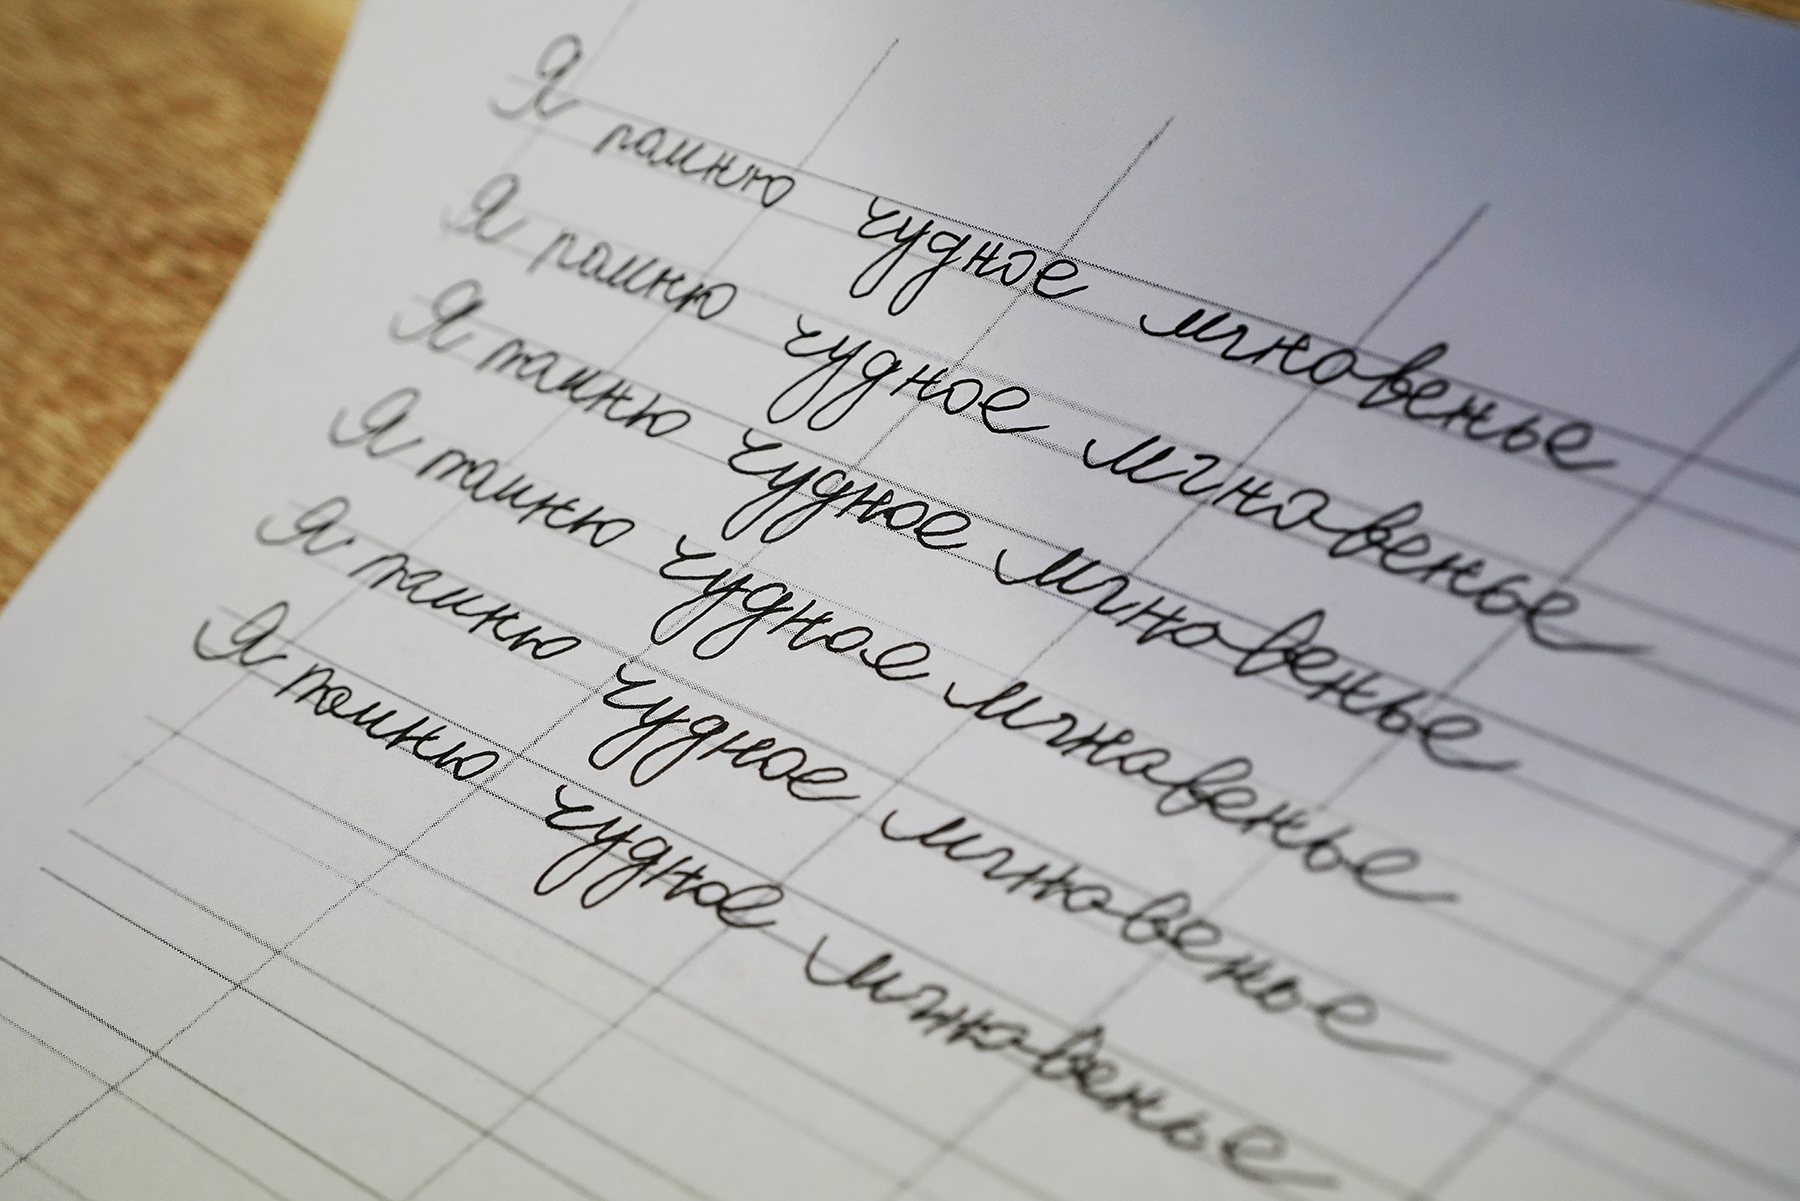 Я помню чудное мгновенье
Я помню чудное мгновенье
Я помню чудное мгновенье
Я помню чудное мгновенье
Я помню чудное мгновенье
Я помню чудное мгновенье